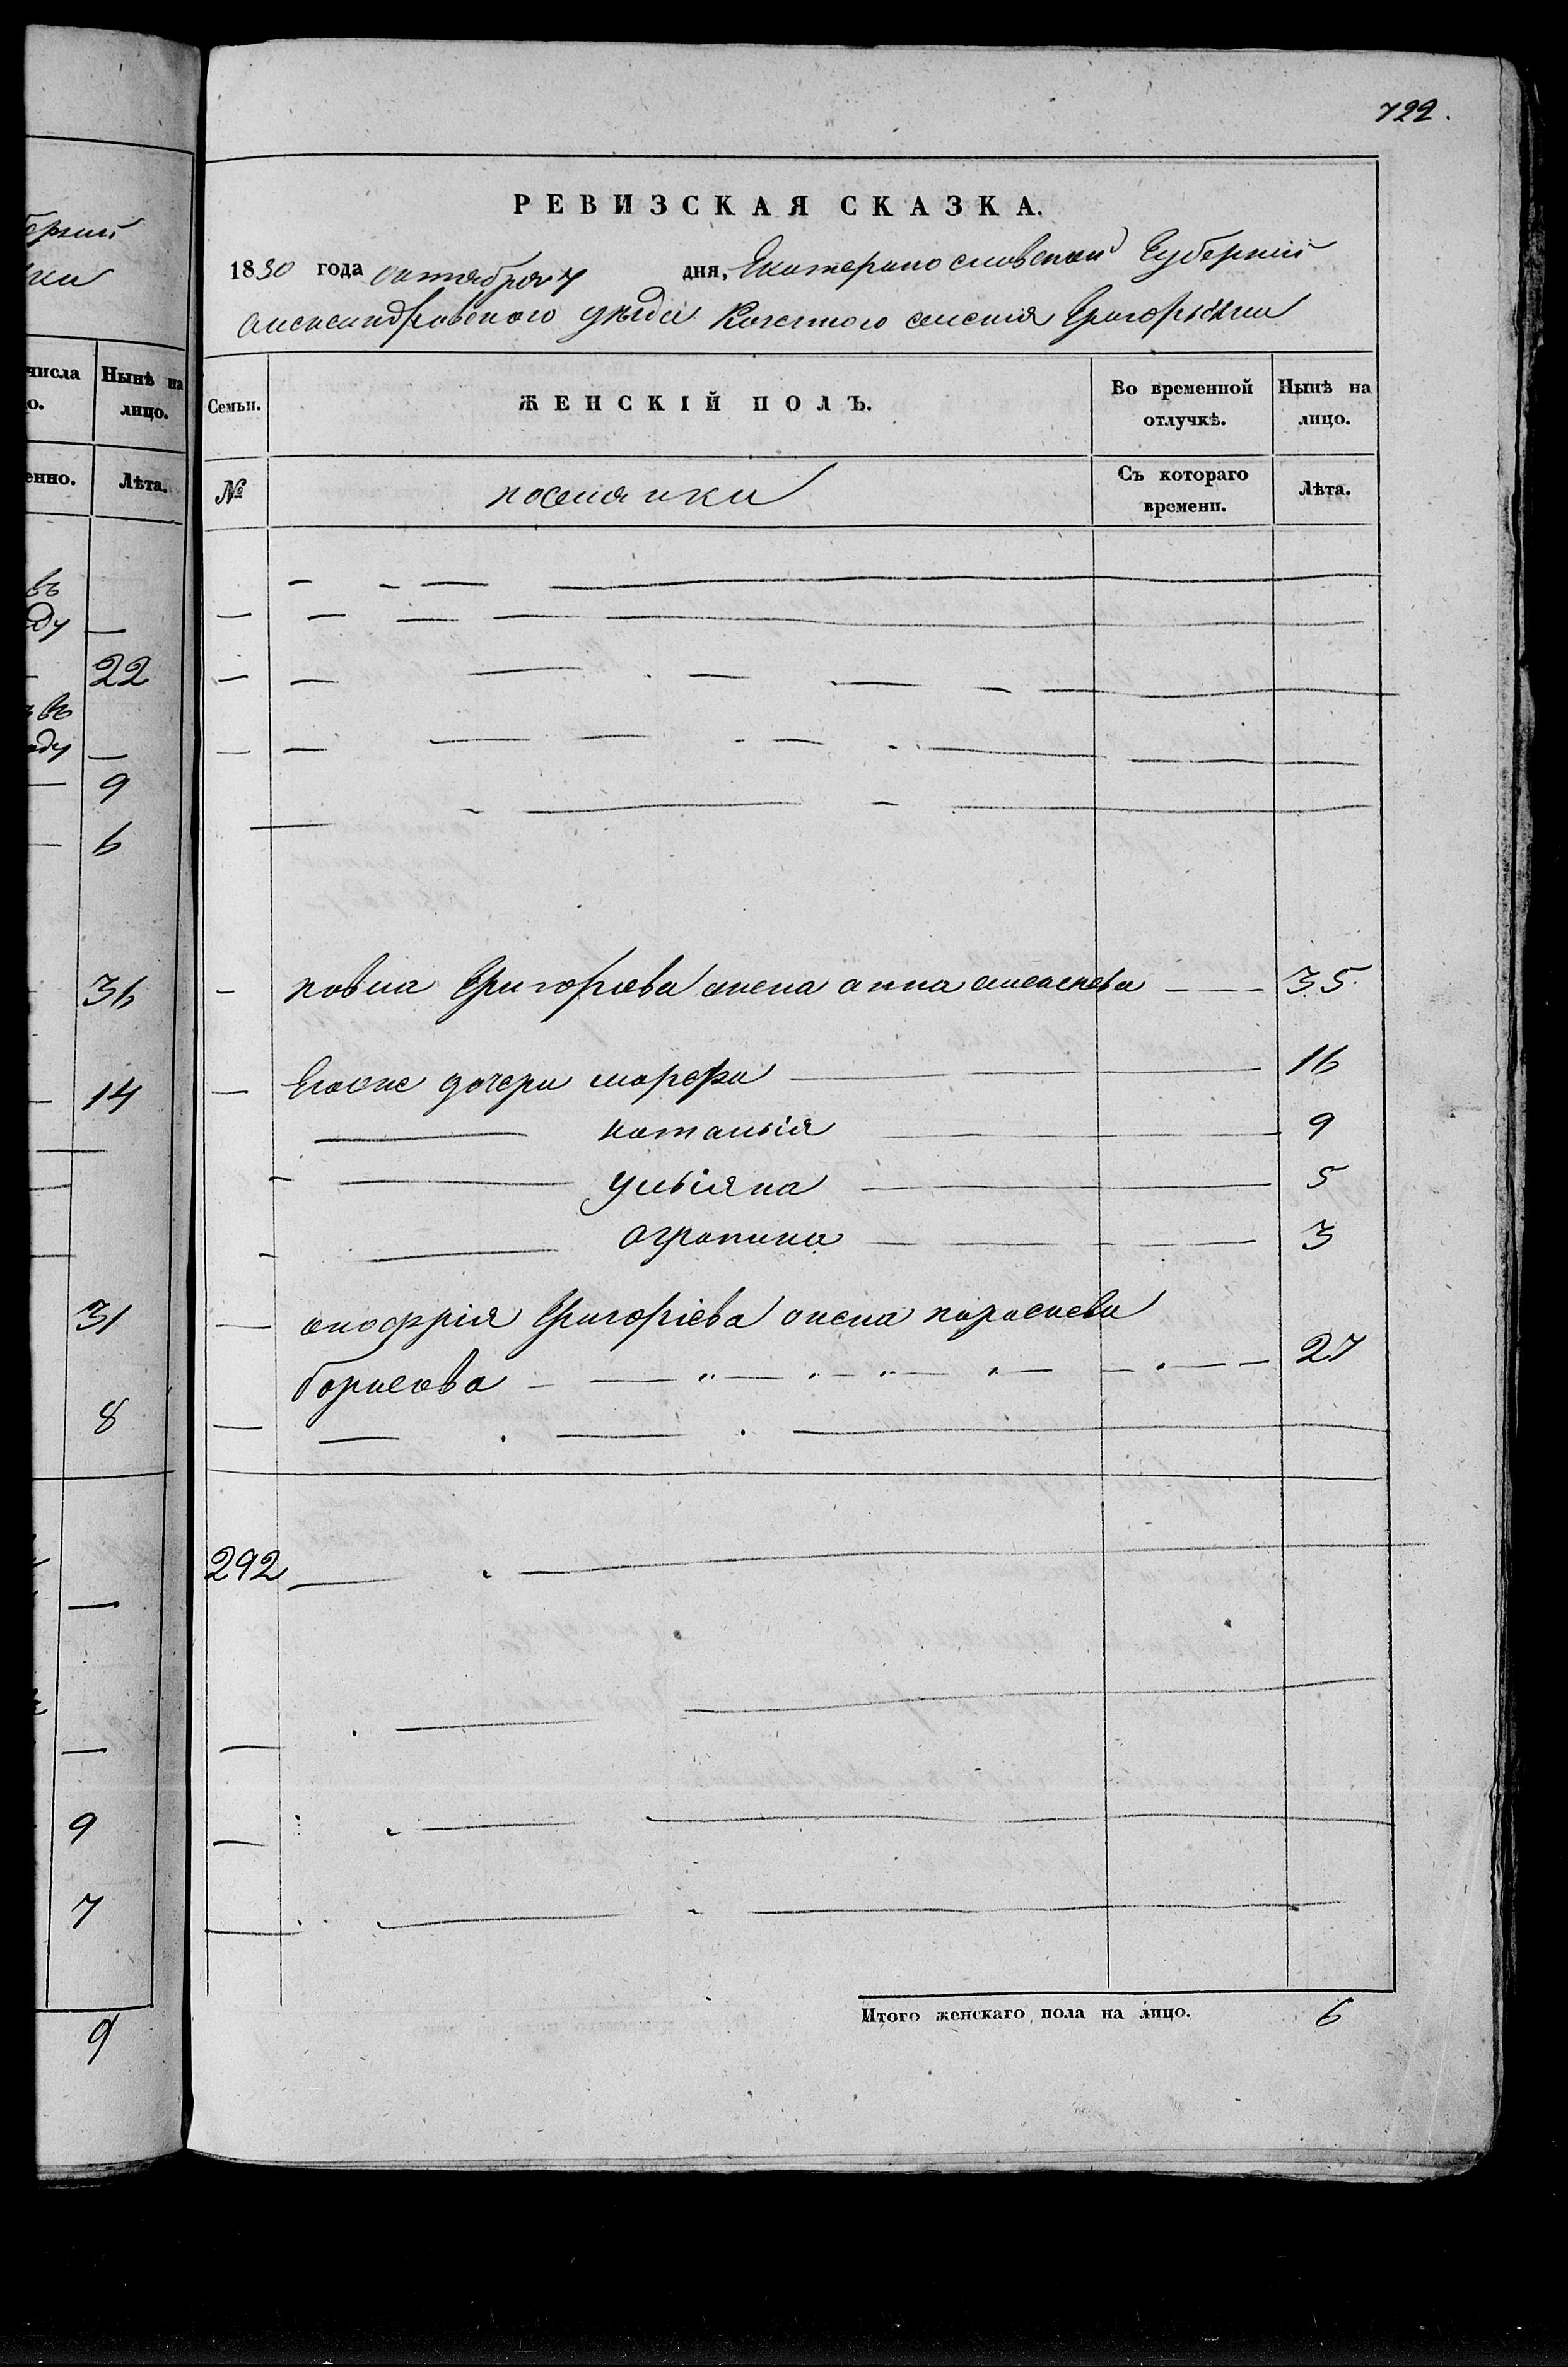 722.
РЕВИЗСКАЯ СКАЗКА.
1830 года октября 7 дня, Екатеринославской Губернии
александровского уезда Казенного селения Григорьевки
Семьи. ЖЕНСКІЙ ПОЛЪ. Во временной отлучкѣ. Нынѣ на лицо.
№ поселянки Съ котораго времени. Лѣта.
павла Григорьева жена анна алексеева 35
Егоже дочери марфа 16
наталія 9
ульіяна 5
аграпина 3
анофрія Григоріева жена параскева
борисова 27
292
Итого женскаго пола на лицо. 6
числа
Нынѣ на лицо.
Лѣта.
22
9
6
36
14
31
8
9
7
9